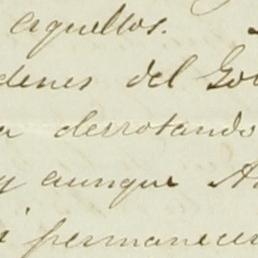 aquellos.
denes del Go
a derrotando
y aunque A
i permanecer